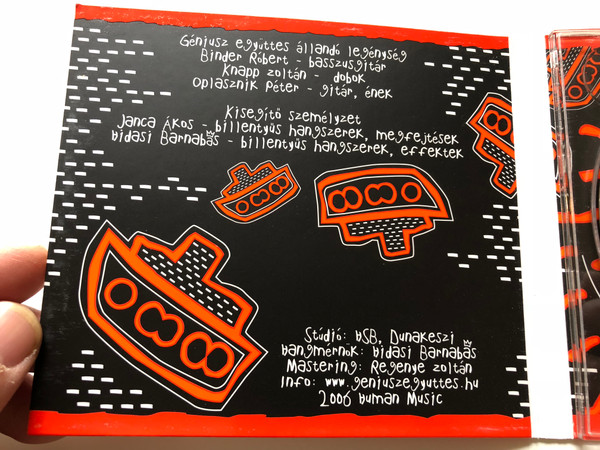 Géniusz együttes állandó legénység
Binder Róbert - basszusgitár
Knapp Zoltán - dobok
Oplasznik Péter - gitár, ének
Kisegítő személyzet
Janca Ákos - billentyűs hangszerek, megfejtések
Hidasi Barnabás - billentyűs hangszerek, effektek
Stúdió: HSB, Dunakeszi
Hangmérnök: Hidasi Barnabás
Mastering: Regenye Zoltán
Info: www.geniuszegyuttes.hu
2006 Human Music